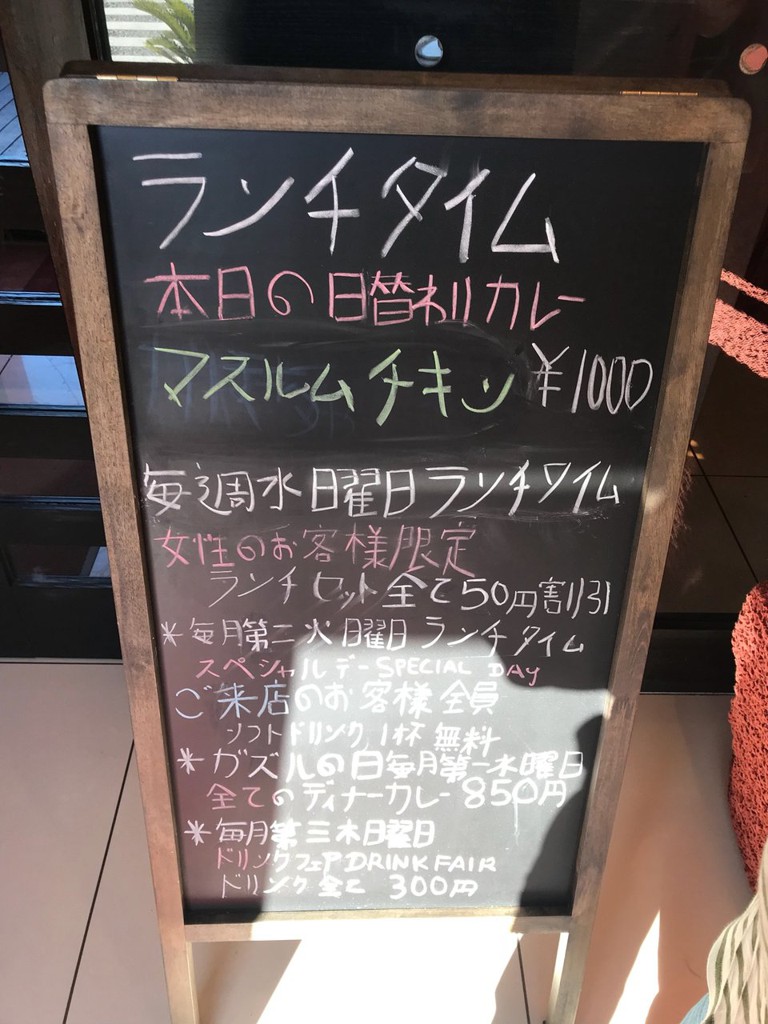 ランチタイム
本日の日替わりカレー
マスルムチキン ¥1000
毎週水曜日ランチタイム
女性のお客様限定
ランチセット全て50円割引
*毎月第二火曜日ランチタイム
スペシャルデーSPECIAL DAY
ご来店のお客様全員
ソフトドリンク1杯無料
*ガズルの日毎月第一水曜日
全てのディナーカレー850円
*毎月第三木曜日
ドリンクフェアDRINK FAIR
ドリンク全て 300円